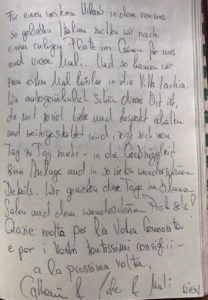 Für einen weiteren Urlaub in dem von uns
so geliebten Italien suchten wir nach
einem ruhigen Platz im Grünen für uns
und unsere Mali. Und so kamen wir
zum ersten Mal hierher in die Villa
Wie außergewöhnlich schön dieser Ort ist,
der mit so viel Liebe und Respekt erhalten
und weitergestaltet wird, zeigt sich von
Tag zu Tag mehr - in der Großzügigkeit
der Anlage und in so vielen wunderschönen
Details. Wir genießen diese Tage im
Salon und dem wunderschönen
Grazie molto per la Vostra
e per i Vostri tantissimi consigli -
a la prossima volta,
& & Mali
WIEN